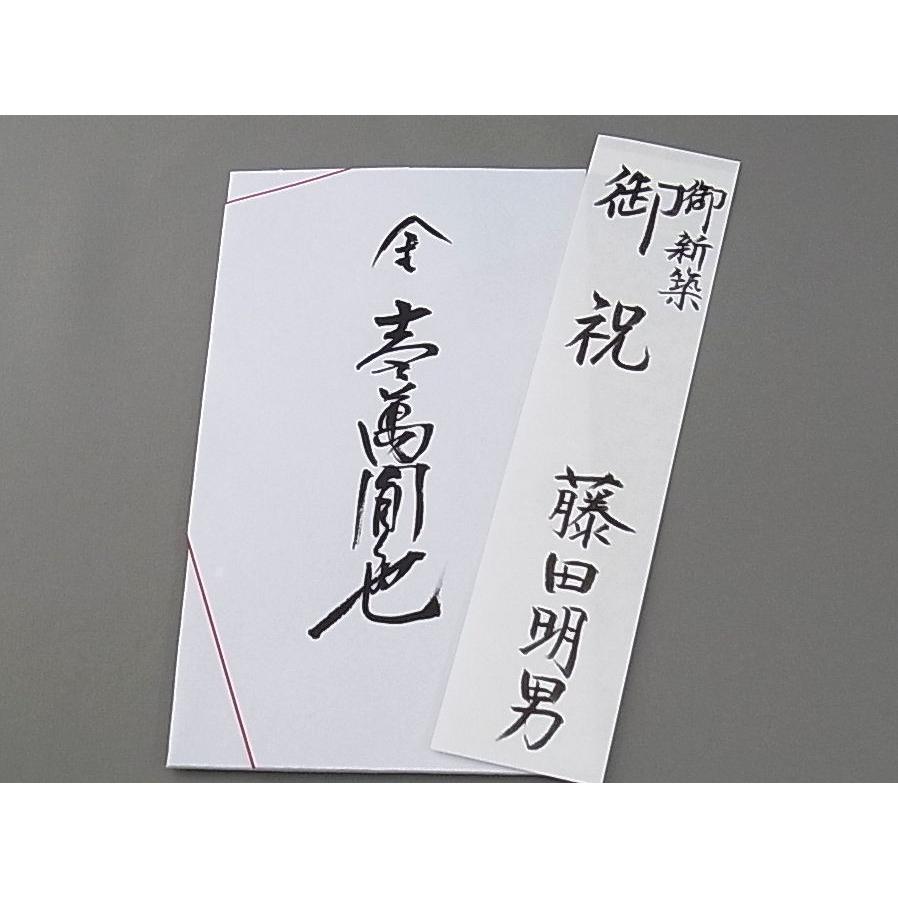 御新築
御祝
藤田明男
金壱萬圓也